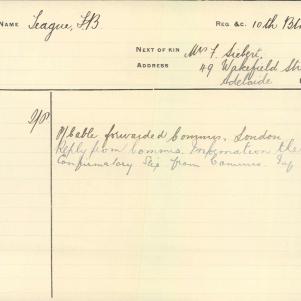 NAME Teague, F.B. REG. &C. 10th Bt
NEXT OF KIN Mrs F. Siebert.
ADDRESS 49 Wakefield Str
Adelaide
O/Cable forwarded Commrs. London
Reply from Commrs. Information the
Confirmatory Slip from Commrs. Inf